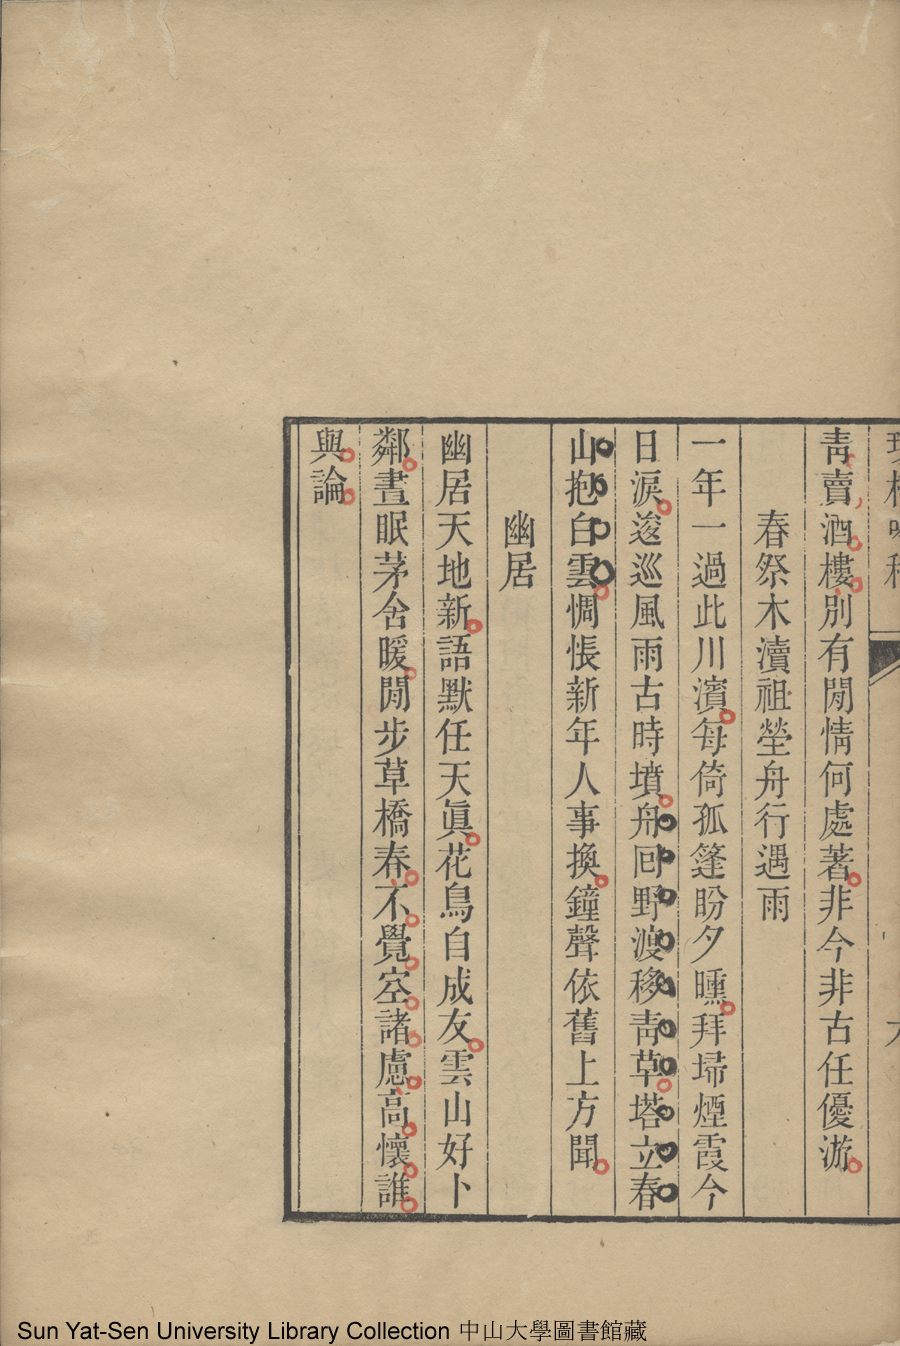 青賣酒樓別有閒情何處著非今非古任優游
春祭木瀆祖塋舟行遇雨
一年一過此川濱每倚孤篷盼夕曛拜埽煙霞今
日淚逡巡風雨古時墳舟回野渡移青草塔立春
山抱白雲惆悵新年人事換鐘聲依舊上方聞
幽居
幽居天地新語默任天眞花鳥自成友雲山好卜
鄰晝眠茅舍暖閒步草橋春不覺空諸慮高懷誰
與論
Sun Yat-Sen University Library Collection 中山大學圖書館藏